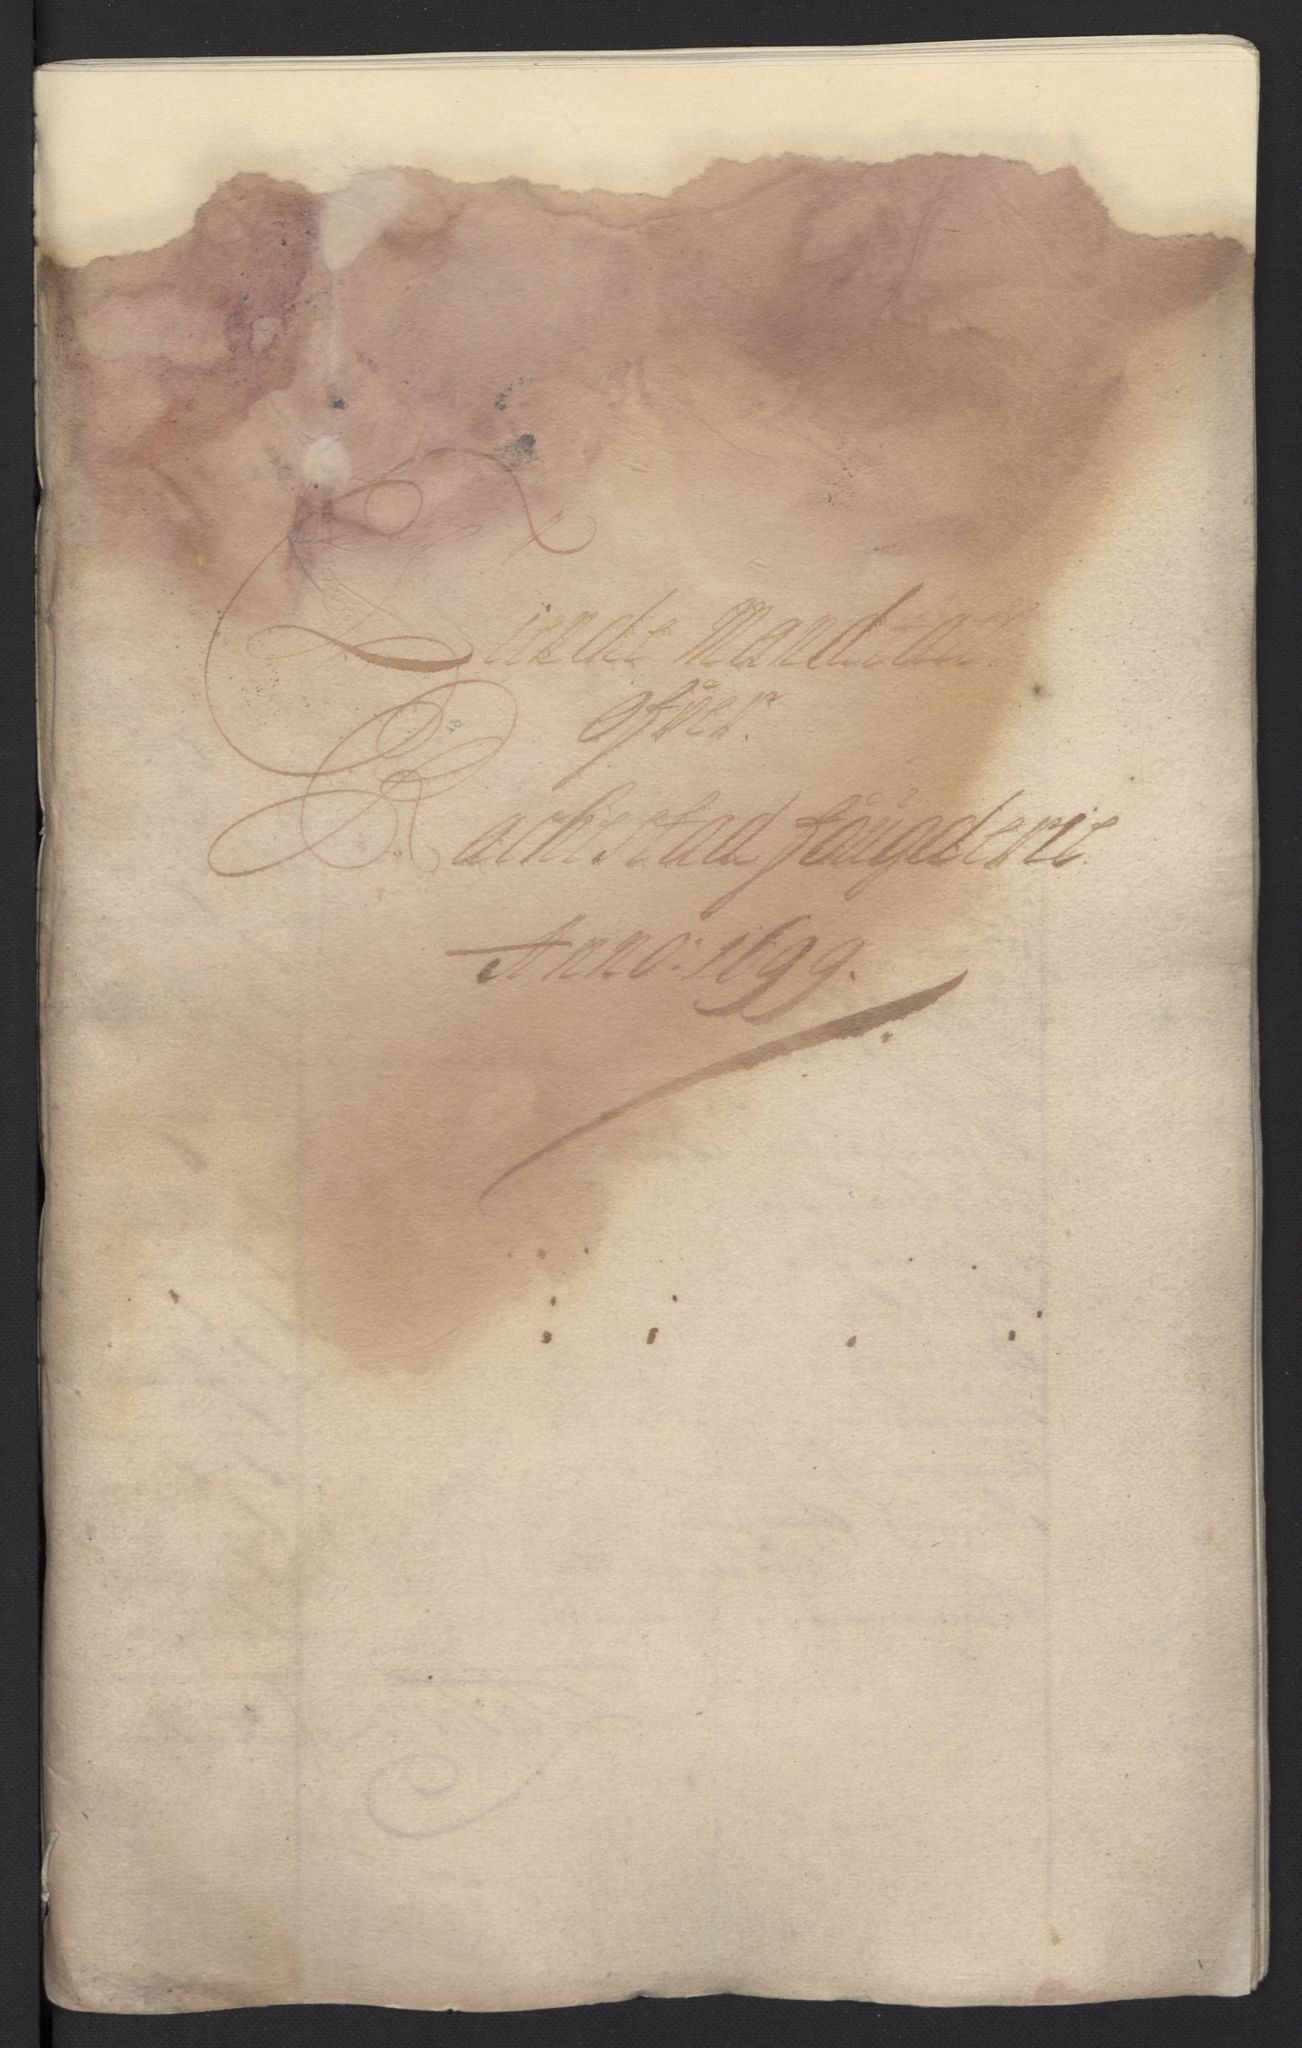 Tiende Mandtal
ofver
Rachestad fougderie.
Anno: 1699.